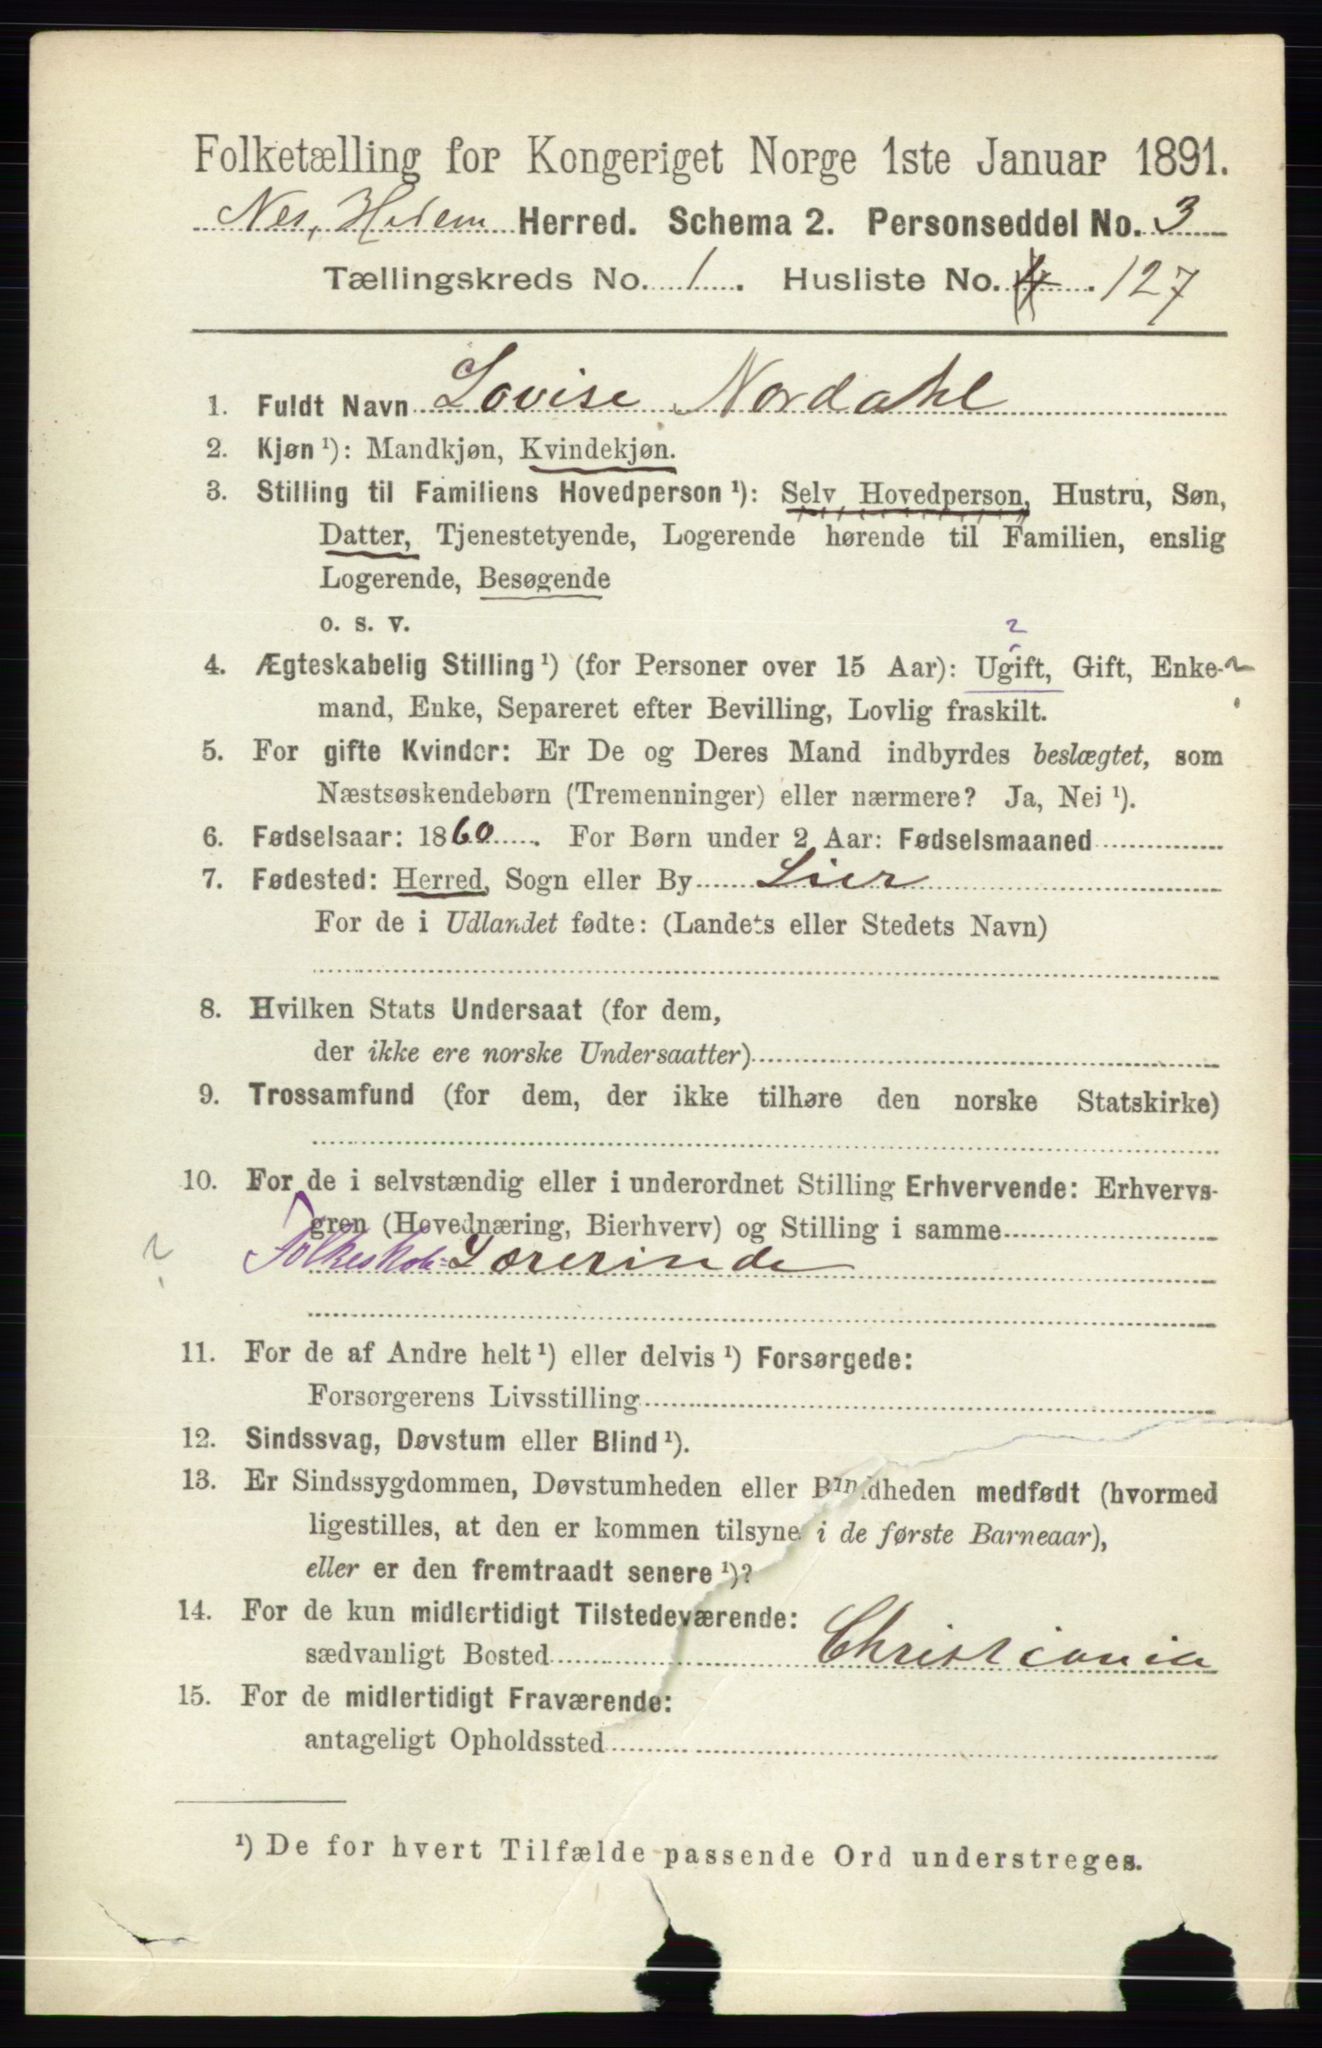 Folketælling for Kongeriget Norge 1ste Januar 1891.
Nes, Hedem Herred. Schema 2. Personseddel No. 3
Tællingskreds No. 1. Husliste No. 4. 127
1. Fuldt Navn Lovise Nordahl
2. Kjøn ¹): Mandkjøn, Kvindekjøn.
3. Stilling til Familiens Hovedperson ¹): Selv Hovedperson, Hustru, Søn,
Datter, Tjenestetyende, Logerende hørende til Familien, enslig
Logerende, Besøgende
o. s. v.
?
4. Ægteskabelig Stilling ¹) (for Personer over 15 Aar): Ugift, Gift, Enke- ?
mand, Enke, Separeret efter Bevilling, Lovlig fraskilt.
5. For gifte Kvinder: Er De og Deres Mand indbyrdes beslægtet, som
Næstsøskendebørn (Tremenninger) eller nærmere? Ja, Nei ¹).
6. Fødselsaar: 1860. For Børn under 2 Aar: Fødselsmaaned
7. Fødested: Herred, Sogn eller By Lier
For de i Udlandet fødte: (Landets eller Stedets Navn)
8. Hvilken Stats Undersaat (for dem,
der ikke ere norske Undersaatter)
9. Trossamfund (for dem, der ikke tilhøre den norske Statskirke)
10. For de i selvstændig eller i underordnet Stilling Erhvervende: Erhvervs-
gren (Hovednæring, Bierhverv) og Stilling i samme
? Folkeskole-Lærerinde
11. For de af Andre helt ¹) eller delvis ¹) Forsørgede:
Forsørgerens Livsstilling
12. Sindssvag, Døvstum eller Blind ¹).
13. Er Sindssygdommen, Døvstumheden eller Blindheden medfødt (hvormed
ligestilles, at den er kommen tilsyne i de første Barneaar),
eller er den fremtraadt senere ¹)?
14. For de kun midlertidigt Tilstedeværende:
sædvanligt Bosted Christiania
15. For de midlertidigt Fraværende:
antageligt Opholdssted
¹) De for hvert Tilfælde passende Ord understreges.